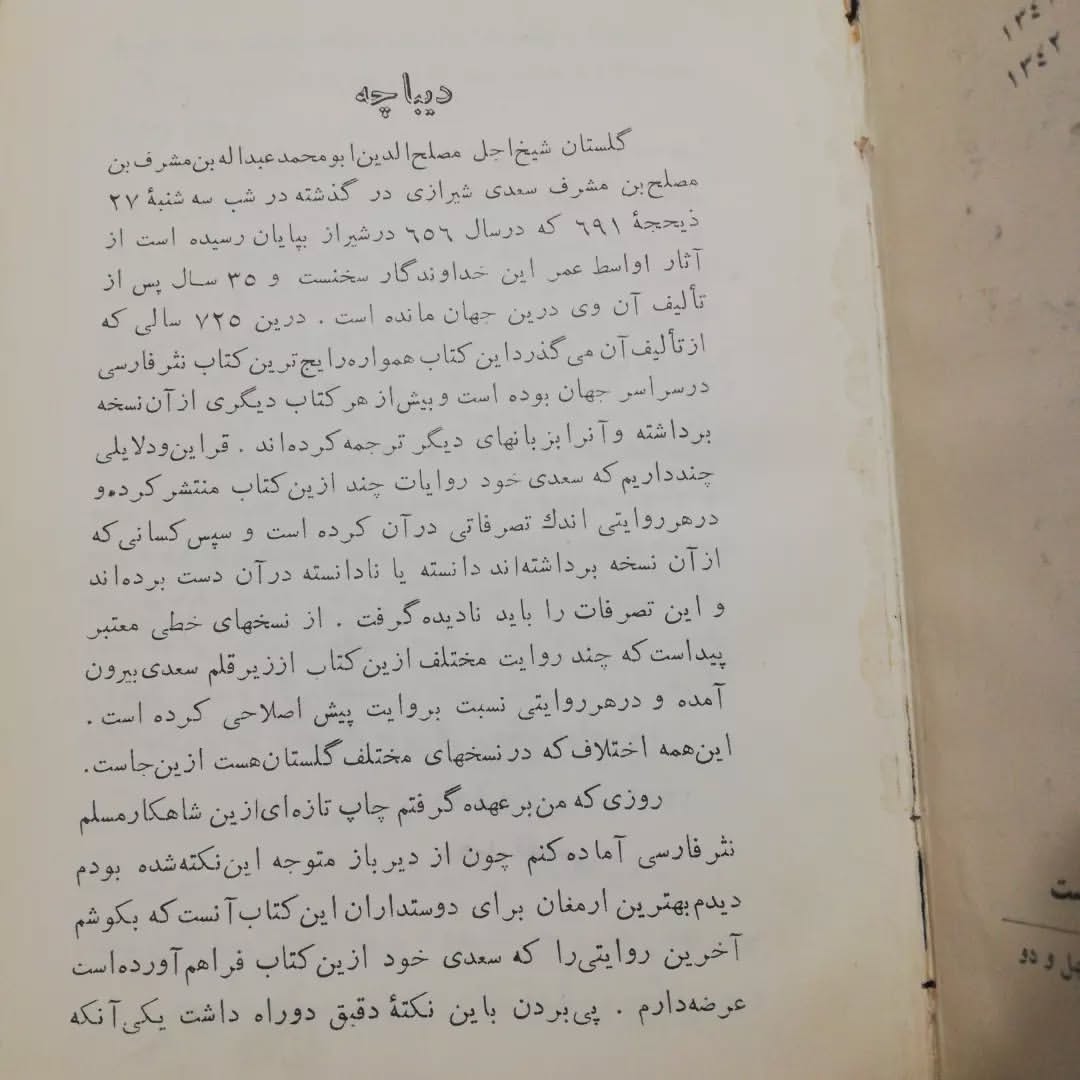 دیباچه
گلستان شیخ اجل مصلح الدین ابو محمد عبداله بن مشرف بن
مصلح بن مشرف سعدی شیرازی در گذشته در شب سه شنبهٔ ۲۷
ذیحجهٔ ۶۹۱ که درسال ۶۵۶ درشیراز بپایان رسیده است از
آثار اواسط عمر این خداوندگار سخنست و ۳۵ سال پس از
تألیف آن وی درین جهان مانده است . درین ۷۲۵ سالی که
از تألیف آن می گذرد این کتاب همواره رایج ترین کتاب نثر فارسی
درسراسر جهان بوده است و بیش از هر کتاب دیگری از آن نسخه
برداشته و آنرا بزبانهای دیگر ترجمه کرده‌اند . قراین و دلایلی
چند داریم که سعدی خود روایات چند ازین کتاب منتشر کرده و
درهر روایتی اندك تصرفاتی درآن کرده است و سپس کسانی که
از آن نسخه برداشته‌اند دانسته یا نادانسته درآن دست برده‌اند
و این تصرفات را باید نادیده گرفت . از نسخهای خطی معتبر
پیداست که چند روایت مختلف ازین کتاب اززیر قلم سعدی بیرون
آمده و درهر روایتی نسبت بروایت پیش اصلاحی کرده است .
این همه اختلاف که در نسخهای مختلف گلستان هست ازین جاست .
روزی که من بر عهده گرفتم چاپ تازه‌ای ازین شاهکار مسلم
نثر فارسی آماده کنم چون از دیر باز متوجه این نکته شده بودم
دیدم بهترین ارمغان برای دوستداران این کتاب آنست که بکوشم
آخرین روایتی را که سعدی خود ازین کتاب فراهم آورده است
عرضه دارم . پی بردن باین نکتهٔ دقیق دوراه داشت یکی آنکه
۱۳۴۲